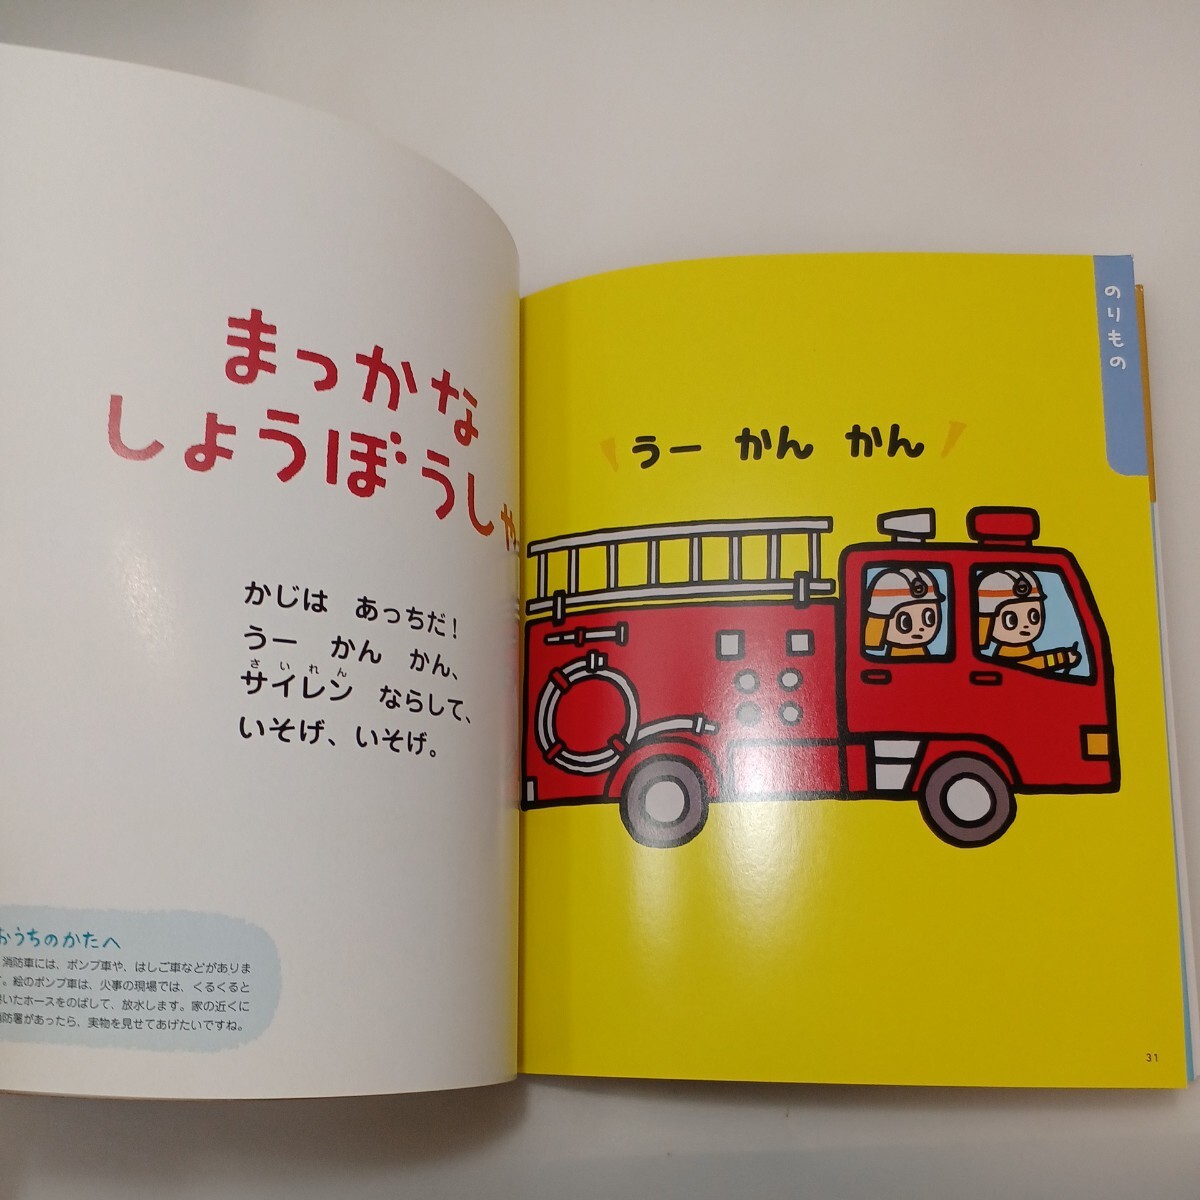 まっかな
しょうぼうしゃ
かじは あっちだ!
うー かん かん、
さいれん
サイレン ならして、
いそげ、いそげ。
おうちのかたへ
消防車には、ポンプ車や、はしご車などがありま
す。絵のポンプ車は、火事の現場では、くるくると
巻いたホースをのばして、放水します。家の近くに
消防署があったら、実物を見せてあげたいですね。
のりもの
うー かん かん
31